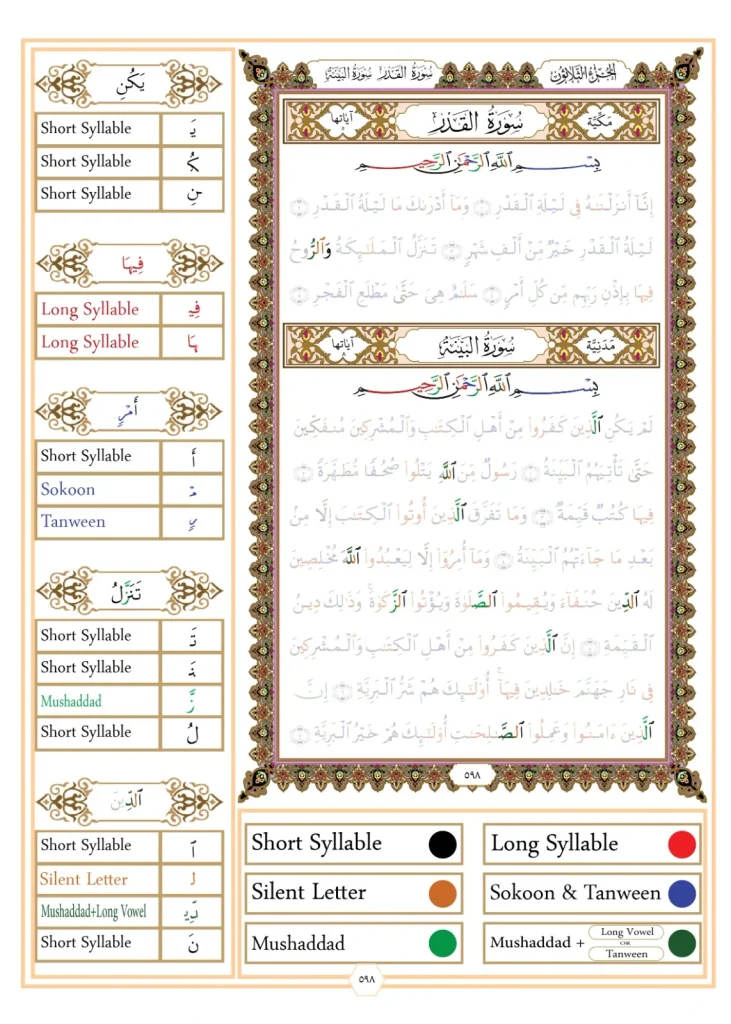 الجزء الثلاثون
سورة القدر سورة البينة
يَكُنِ
Short Syllable يَـ
Short Syllable ـكُـ
Short Syllable ـنِ
فِيهَا
Long Syllable فِيـ
Long Syllable ـهَا
أَمْرٍ
Short Syllable أَ
Sokoon ـمْـ
Tanween ـرٍ
تَنَزَّلُ
Short Syllable تَـ
Short Syllable ـنَـ
Mushaddad ـزَّ
Short Syllable لُ
الَّدِينَ
Short Syllable ٱ
Silent Letter لـ
Mushaddad+Long Vowel ـدِّيـ
Short Syllable نَ
مكية سورة القدر آياتها ٥
بِسْمِ اللَّهِ الرَّحْمَٰنِ الرَّحِيمِ
إِنَّآ أَنزَلْنَـٰهُ فِى لَيْلَةِ الْقَدْرِ ۝١ وَمَآ أَدْرَىٰكَ مَا لَيْلَةُ الْقَدْرِ ۝٢
لَيْلَةُ الْقَدْرِ خَيْرٌ مِّنْ أَلْفِ شَهْرٍ ۝٣ تَنَزَّلُ الْمَلَـٰٓئِكَةُ وَالرُّوحُ
فِيهَا بِإِذْنِ رَبِّهِم مِّن كُلِّ أَمْرٍ ۝٤ سَلَـٰمٌ هِىَ حَتَّىٰ مَطْلَعِ الْفَجْرِ ۝٥
مدنية سورة البينة آياتها ٨
بِسْمِ اللَّهِ الرَّحْمَٰنِ الرَّحِيمِ
لَمْ يَكُنِ الَّذِينَ كَفَرُوا مِنْ أَهْلِ الْكِتَـٰبِ وَالْمُشْرِكِينَ مُنفَكِّينَ
حَتَّىٰ تَأْتِيَهُمُ الْبَيِّنَةُ ۝١ رَسُولٌ مِّنَ اللَّهِ يَتْلُوا صُحُفًا مُّطَهَّرَةً ۝٢
فِيهَا كُتُبٌ قَيِّمَةٌ ۝٣ وَمَا تَفَرَّقَ الَّذِينَ أُوتُوا الْكِتَـٰبَ إِلَّا مِنۢ
بَعْدِ مَا جَآءَتْهُمُ الْبَيِّنَةُ ۝٤ وَمَآ أُمِرُوٓا إِلَّا لِيَعْبُدُوا اللَّهَ مُخْلِصِينَ
لَهُ الدِّينَ حُنَفَآءَ وَيُقِيمُوا الصَّلَوٰةَ وَيُؤْتُوا الزَّكَوٰةَ ۚ وَذَٰلِكَ دِينُ
الْقَيِّمَةِ ۝٥ إِنَّ الَّذِينَ كَفَرُوا مِنْ أَهْلِ الْكِتَـٰبِ وَالْمُشْرِكِينَ
فِى نَارِ جَهَنَّمَ خَـٰلِدِينَ فِيهَآ ۚ أُولَـٰٓئِكَ هُمْ شَرُّ الْبَرِيَّةِ ۝٦ إِنَّ
الَّذِينَ ءَامَنُوا وَعَمِلُوا الصَّـٰلِحَـٰتِ أُولَـٰٓئِكَ هُمْ خَيْرُ الْبَرِيَّةِ ۝٧
٥٩٨
Short Syllable
Long Syllable
Silent Letter
Sokoon & Tanween
Mushaddad
Mushaddad + Long Vowel OR Tanween
٥٩٨